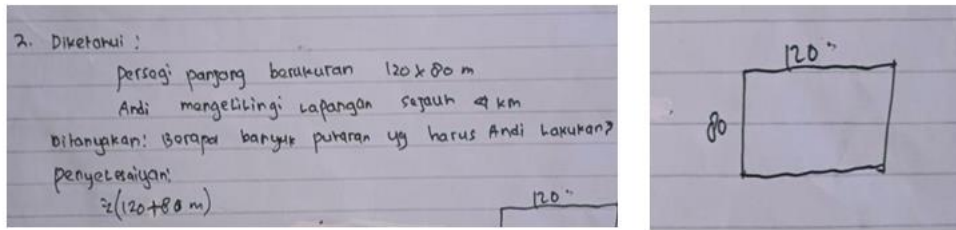 2. Diketahui :
persegi panjang berukuran 120 x 80 m
Andi mengelilingi Lapangan sejauh 4 km
Ditanyakan: Berapa banyak putaran yg harus Andi Lakukan?
penyelesaiyan:
2(120+80 m)
120
120
80